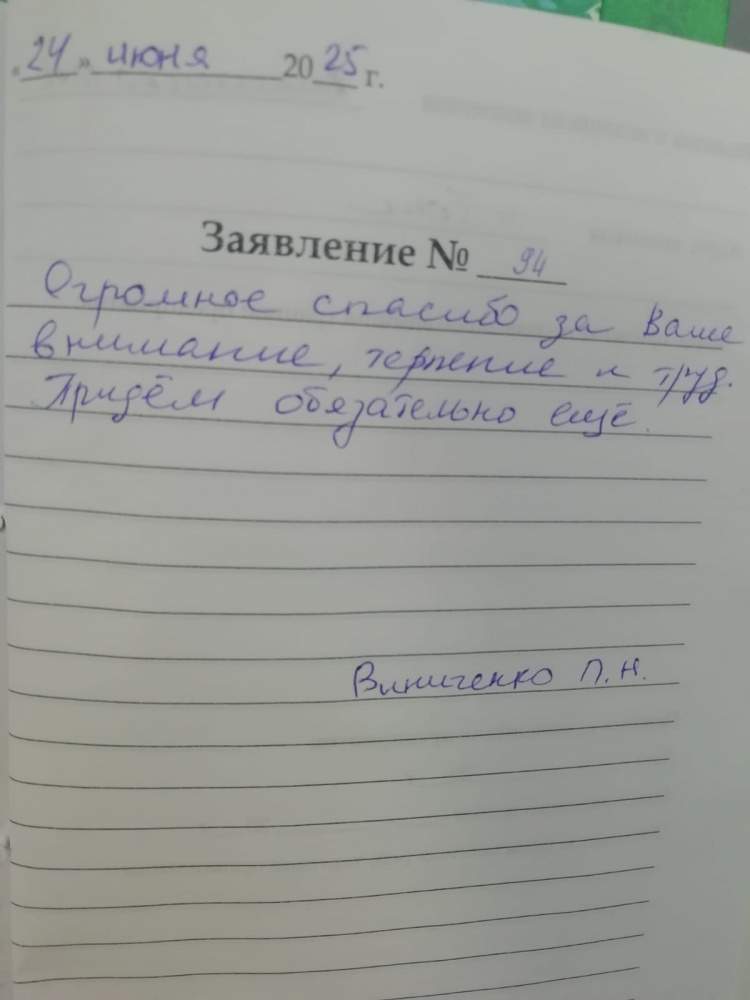 «24» июня 2025 г.
Заявление № 94
Огромное спасибо за Ваше
внимание, терпение и труд.
Придём обязательно ещё.
Виниченко Л.Н.